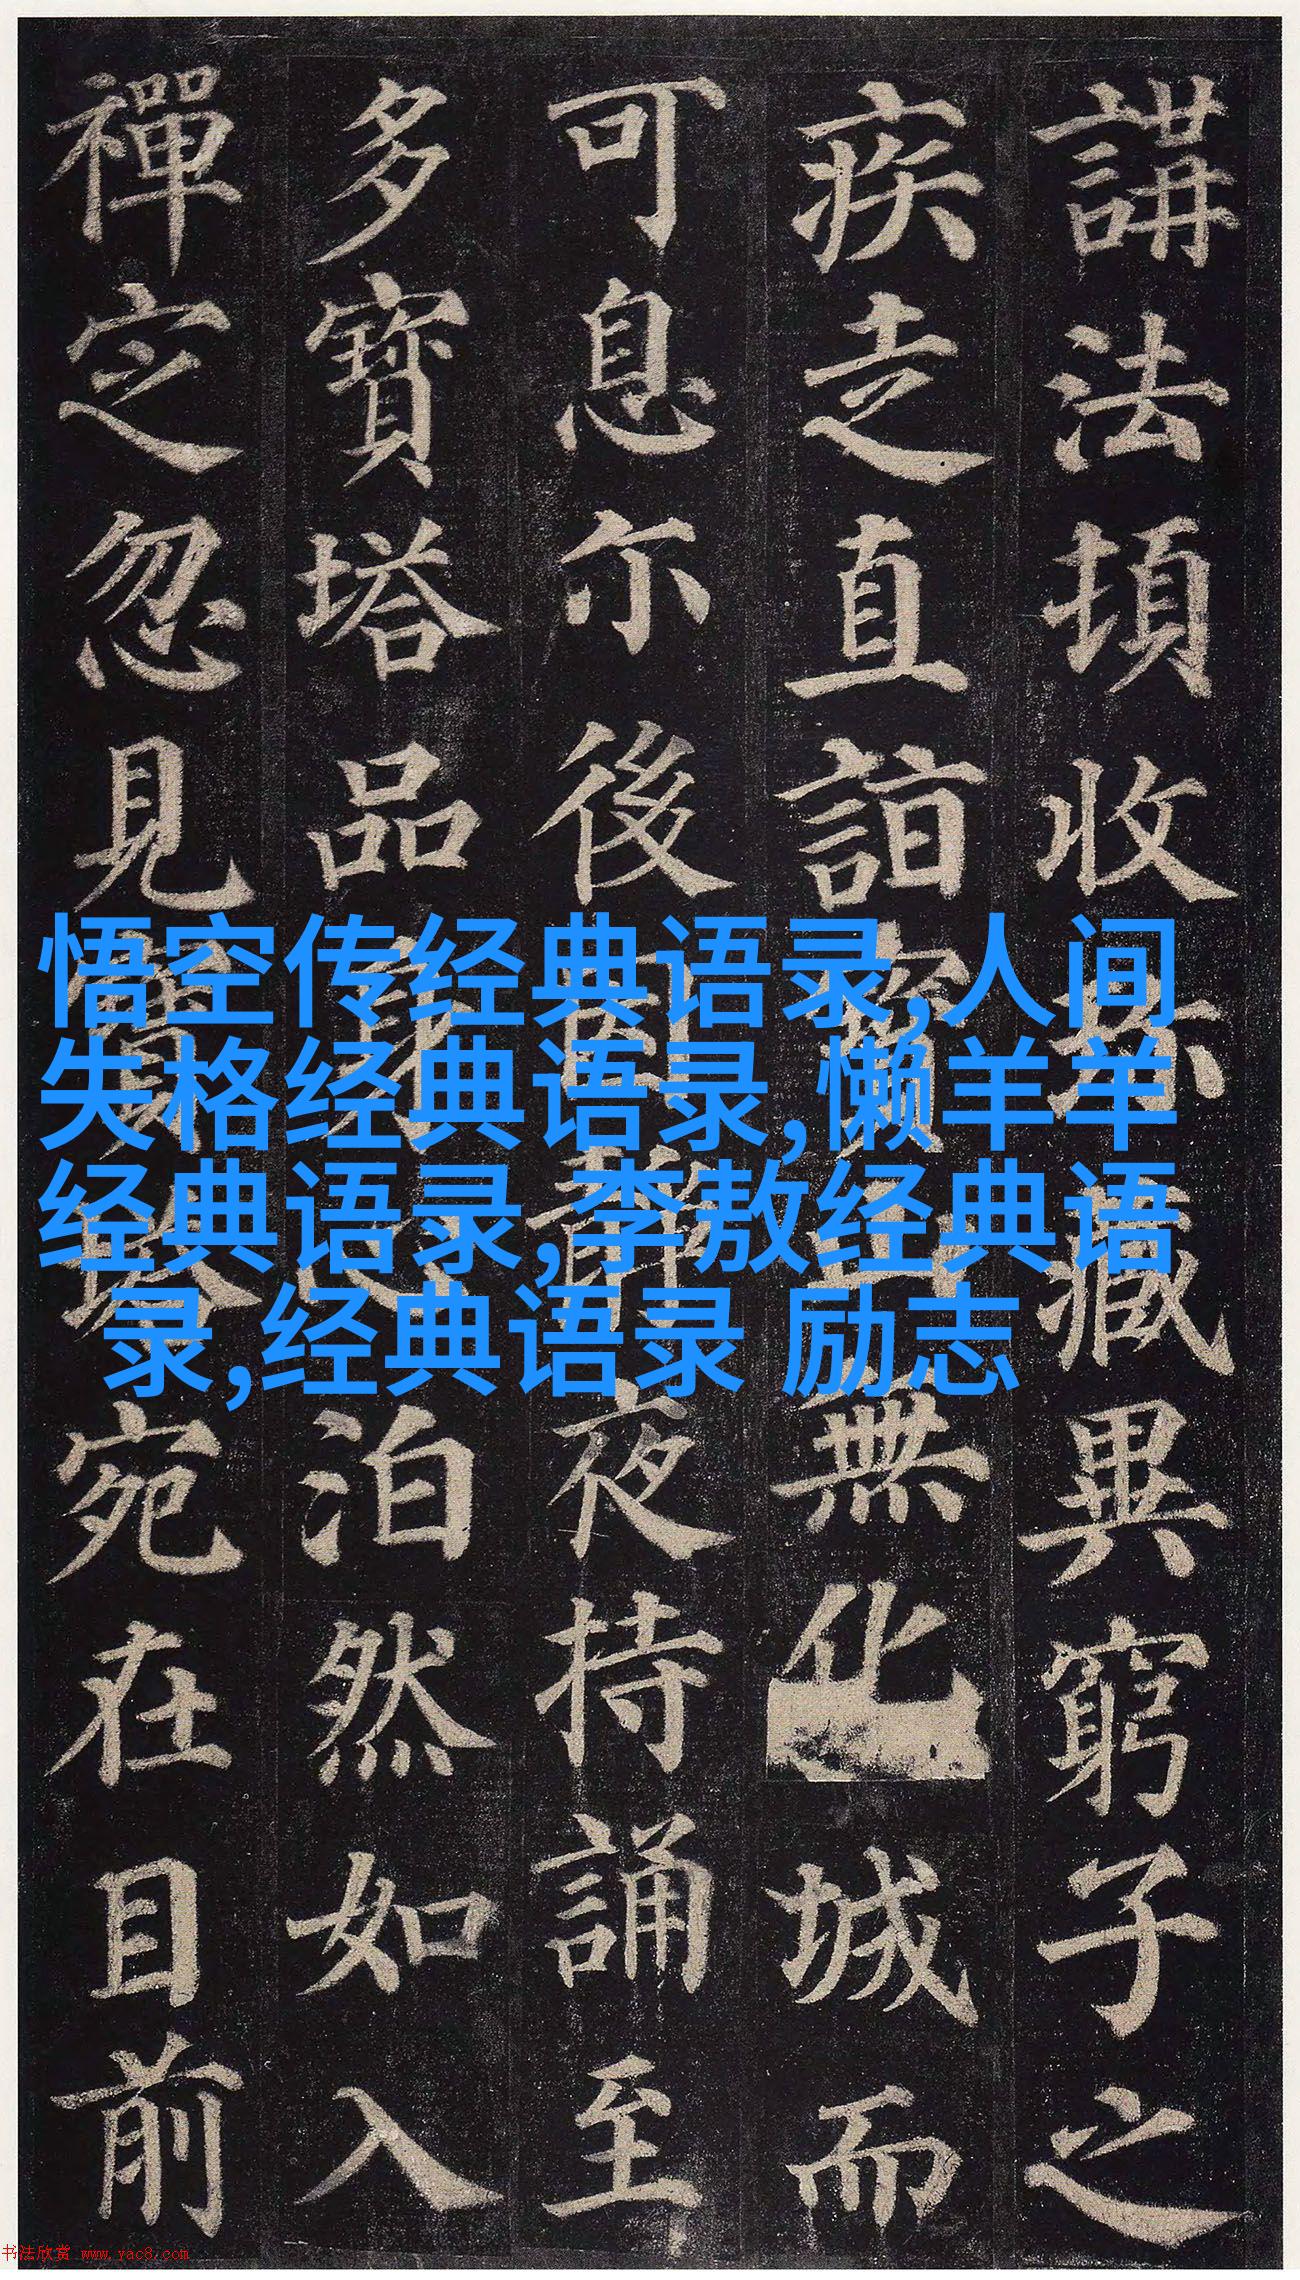 講法頓收珎藏異窮子之
疾走直詣寶山無化城而
可息尒後因靜夜持誦至
多寶塔品身心泊然如入
禪定忽見寶塔宛在目前
悟空传经典语录,人间
失格经典语录,懒羊羊
经典语录,李敖经典语
录,经典语录 励志
书法欣赏 www.yac8.com